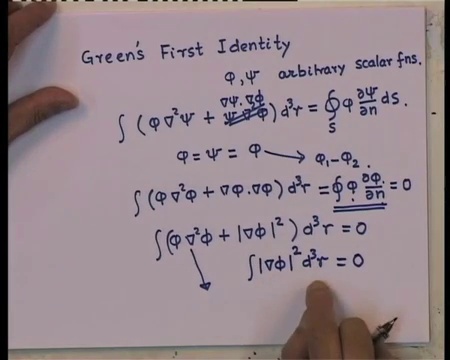 Green's First Identity
φ, ψ arbitrary scalar fns.
∇ψ.∇φ
∫ (φ∇²ψ + ψ.∇φ) d³r = ∮_S φ ∂ψ/∂n ds.
φ = ψ = φ → φ₁-φ₂.
∫(φ∇²φ + ∇φ.∇φ) d³r = ∮ φ ∂φ/∂n = 0
∫(φ∇²φ + |∇φ|²) d³r = 0
∫|∇φ|² d³r = 0